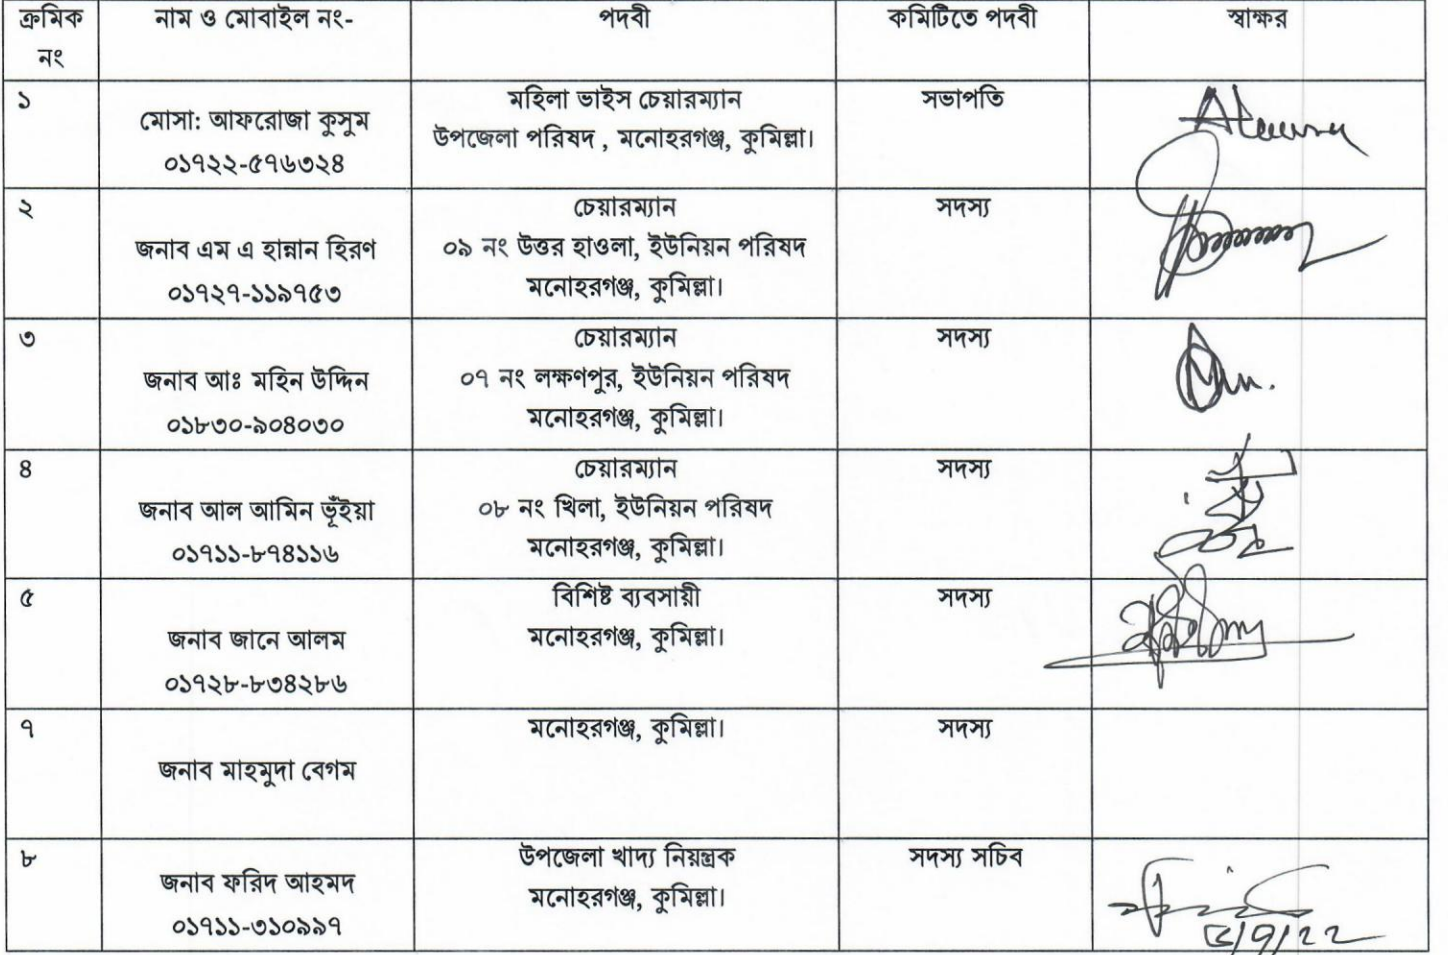 ক্রমিক নং	নাম ও মোবাইল নং-	পদবী	কমিটিতে পদবী	স্বাক্ষর
১
মোসা: আফরোজা কুসুম
০১৭২২-৫৭৬৩২৪
মহিলা ভাইস চেয়ারম্যান
উপজেলা পরিষদ , মনোহরগঞ্জ, কুমিল্লা।
সভাপতি
২
জনাব এম এ হান্নান হিরণ
০১৭২৭-১১৯৭৫৩
চেয়ারম্যান
০৯ নং উত্তর হাওলা, ইউনিয়ন পরিষদ
মনোহরগঞ্জ, কুমিল্লা।
সদস্য
৩
জনাব আঃ মহিন উদ্দিন
০১৮৩০-৯০৪০৩০
চেয়ারম্যান
০৭ নং লক্ষণপুর, ইউনিয়ন পরিষদ
মনোহরগঞ্জ, কুমিল্লা।
সদস্য
৪
জনাব আল আমিন ভূঁইয়া
০১৭১১-৮৭৪১১৬
চেয়ারম্যান
০৮ নং খিলা, ইউনিয়ন পরিষদ
মনোহরগঞ্জ, কুমিল্লা।
সদস্য
৫
জনাব জানে আলম
০১৭২৮-৮৩৪২৮৬
বিশিষ্ট ব্যবসায়ী
মনোহরগঞ্জ, কুমিল্লা।
সদস্য
৭
জনাব মাহমুদা বেগম
মনোহরগঞ্জ, কুমিল্লা।
সদস্য
৮
জনাব ফরিদ আহমদ
০১৭১১-৩১০৯৯৭
উপজেলা খাদ্য নিয়ন্ত্রক
মনোহরগঞ্জ, কুমিল্লা।
সদস্য সচিব